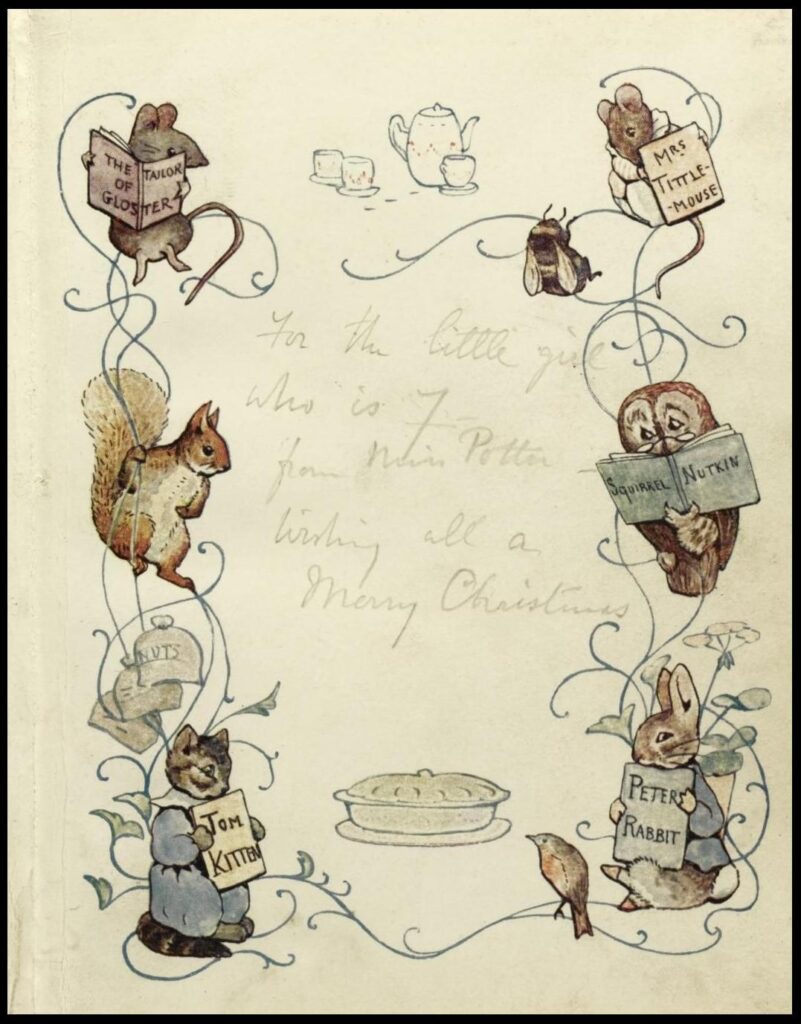 THE TAILOR
OF
GLOSTER
MRS
TITTLE-
-MOUSE
For the little girl
who is 7 -
from Miss Potter -
wishing all a
Merry Christmas
SQUIRREL NUTKIN
NUTS
TOM
KITTEN
PETER
RABBIT